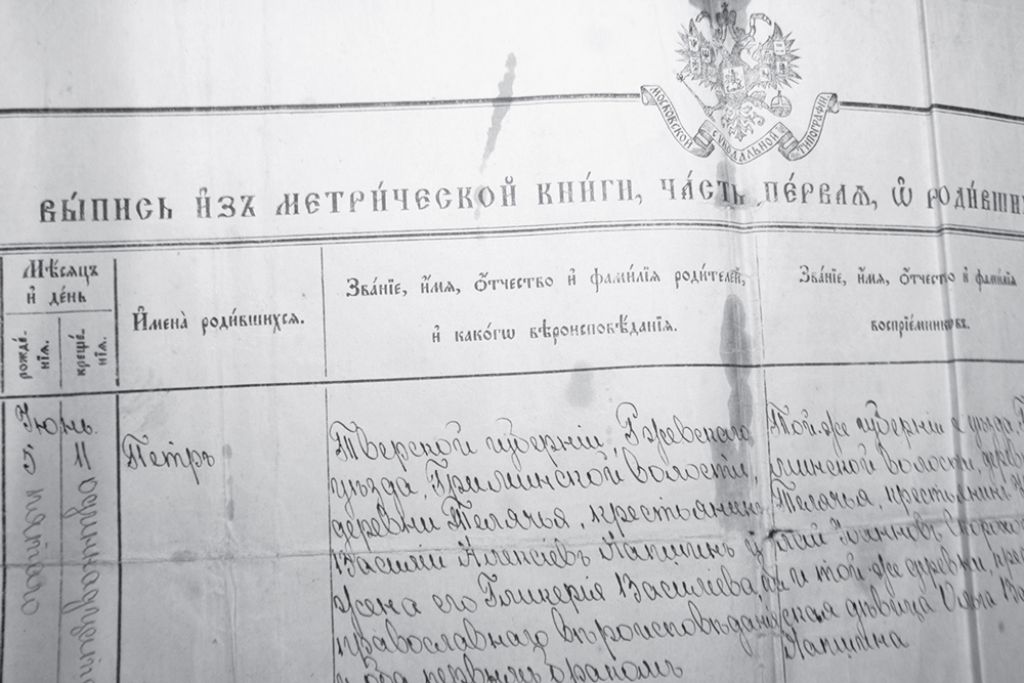 МОСКОВСКОЙ СѴНОДАЛЬНОЙ ТИПОГРАФІИ
ВЫ́ПИСЬ И҆ЗЪ МЕТРИ́ЧЕСКОЙ КНИ́ГИ, ЧА́СТЬ ПЕ́РВАЯ, Ѽ РОДИ́ВШИХ
Мѣ́сяцъ
и҆ де́нь
рожде́-
нїѧ.
креще́-
нїѧ.
И҆мена̀ роди́вшихсѧ.
Зва́нїе, и҆́мѧ, ѻ҆́тчество и҆ фами́лїѧ роди́телей,
и҆ како́гѡ вѣроисповѣ́данїѧ.
Зва́нїе, и҆́мѧ, ѻ҆́тчество и҆ фами́лїѧ
воспрїе́мникѡвъ.
Іюнь.
5 пятого
11 одиннадцат
Петръ
Тверской губерніи, Ржевскаго
уѣзда, волости,
деревни Телячья, крестьянинъ
Василій Алексіевъ Лапшинъ и
жена его Гликерія Василіева,
православнаго вѣроисповѣданія
первымъ бракомъ
Той-же губерніи и уѣзда,
волости,
Телячья, крестьянинъ
Іоанновъ
и той-же деревни,
дѣвица Ольга
Лапшина